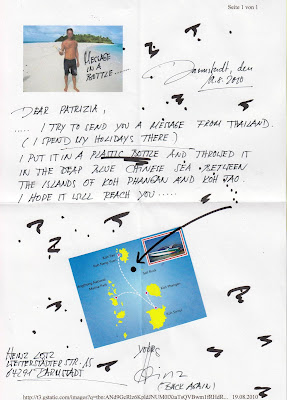 Seite 1 von 1
MESSAGE
IN A
BOTTLE.....
Darmstadt, den
19.8.2010
DEAR PATRIZIA,
..... I TRY TO SEND YOU A MESSAGE FROM THAILAND.
(I SPEND MY HOLIDAYS THERE)
I PUT IT IN A PLASTIC BOTTLE AND THROWED IT
IN THE DEEP BLUE CHINESE SEA BETWEEN
THE ISLANDS OF KOH PHANGAN AND KOH TAO.
I HOPE IT WILL REACH YOU.....
Koh Tao
Koh Nang Yuan
Sail Rock
Angthong National
Marine Park
Koh Phangan
Koh Samui
YOURS
Heinz
(BACK AGAIN)
HEINZ LOTZ
WEITERSTÄDTER STR. 15
64291 DARMSTADT
19.08.2010